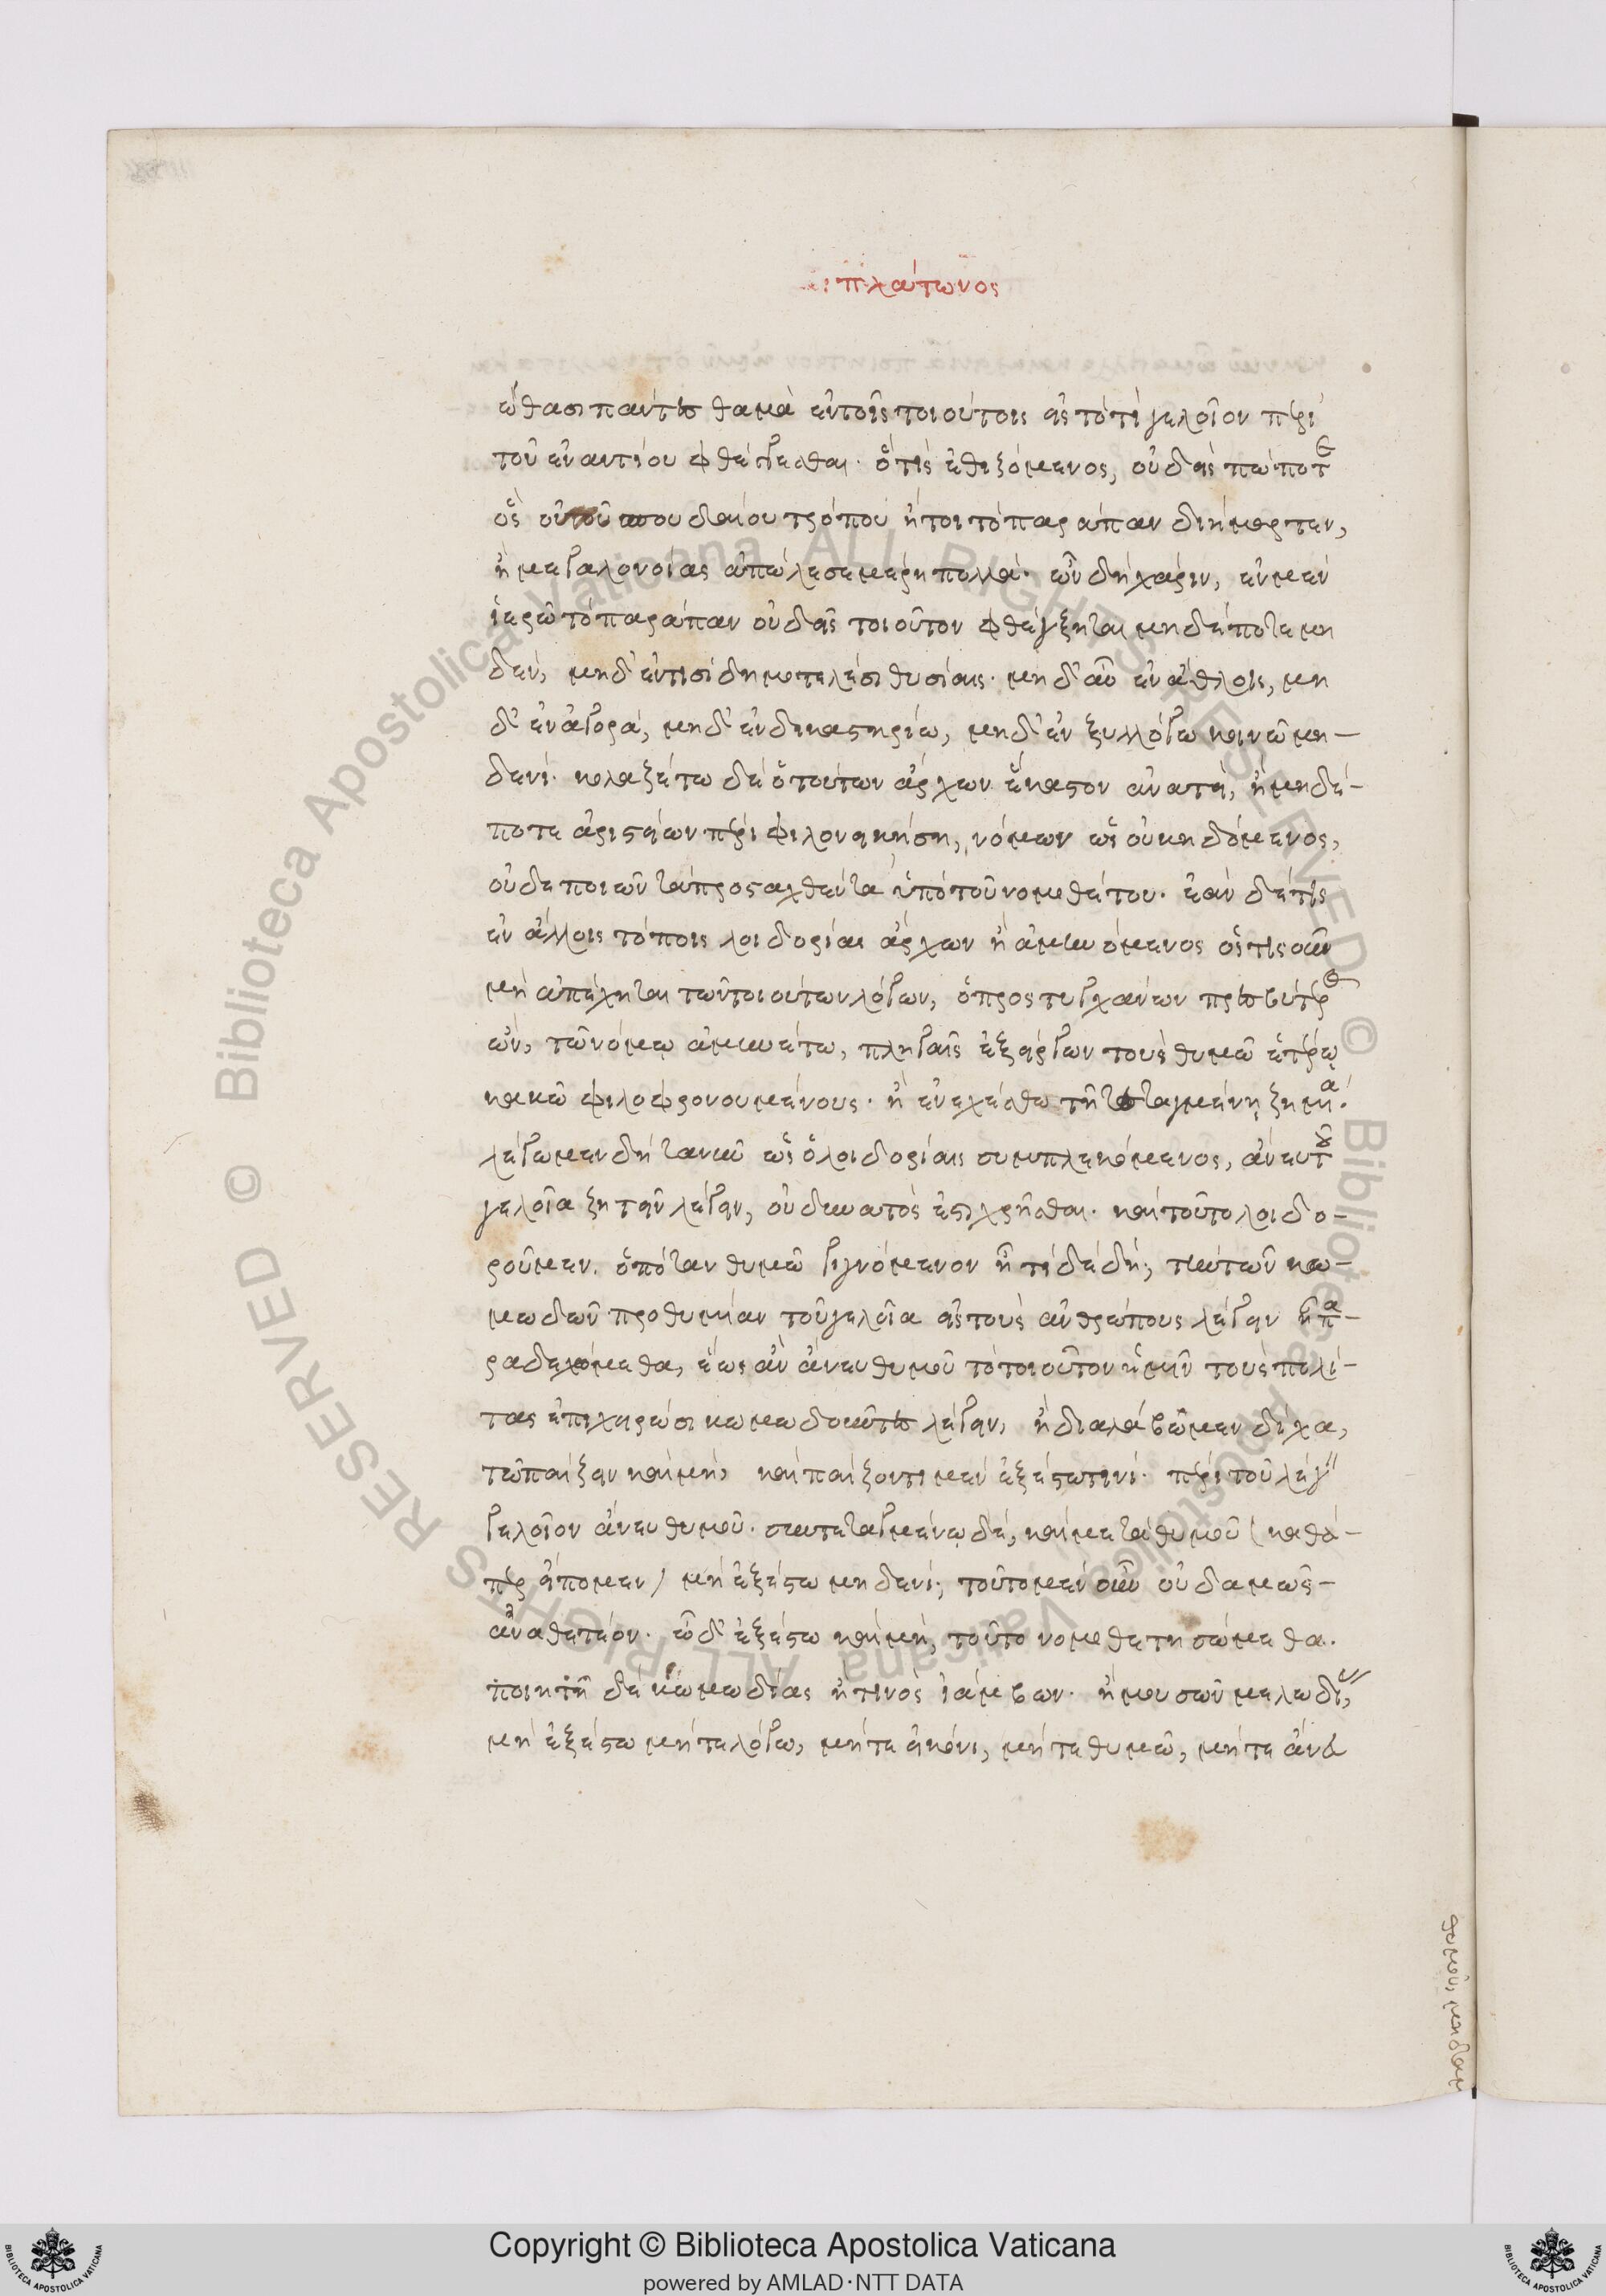 πλάτωνος
εἰώθασι πάντες θαμὰ ἐν τοῖς τοιούτοις εἰς τὸ τὶ γελοῖον περὶ
τοῦ ἐναντίου φθέγγεσθαι. ὅ τις ἐθιζόμενος, οὐδεὶς πώποτε
ὃς οὐ τοῦ σπουδαίου τρόπου ἤτοι τὸ παράπαν διήμαρτεν,
ἢ μεγαλονοίας ἀπώλεσε μέρη πολλά. ὧν δὴ χάριν, ἐν μὲν
ἱερῷ τὸ παράπαν οὐδεὶς τοιοῦτον φθέγξηται μηδέποτε μη
δέν, μηδ' ἔν τισι δημοτελέσι θυσίαις. μηδ' αὖ ἐν ἄθλοις, μη
δ' ἐν ἀγορᾷ, μηδ' ἐν δικαστηρίῳ, μηδ' ἐν ξυλλόγῳ κοινῷ μη-
δενί. κολαζέτω δὲ ὁ τούτων ἄρχων ἕκαστον ἀνατί, ἢ μηδέ-
ποτε ἀριστείων πέρι φιλονεικήσῃ, νόμων ὡς οὐ κηδόμενος,
οὐδὲ ποιῶν τὰ προσαχθέντα ὑπὸ τοῦ νομοθέτου. ἐὰν δέ τις
ἐν ἄλλοις τόποις λοιδορίας ἄρχων ἢ ἀμυνόμενος ὁστισοῦν
μὴ ἀπέχηται τῶν τοιούτων λόγων, ὁ προστυγχάνων πρεσβύτερος
ὤν, τῷ νόμῳ ἀμυνέτω, πληγαῖς ἐξείργων τοὺς θυμῷ ἑτέρῳ
κακῷ φιλοφρονουμένους. ἢ ἐνεχέσθω τῇ τεταγμένῃ ζημίᾳ.
λέγωμεν δὴ τανῦν ὡς ὁ λοιδορίαις συμπλεκόμενος, ἄνευ τοῦ
γελοῖα ζητεῖν λέγειν, οὐ δυνατός ἐστι χρῆσθαι. καὶ τοῦτο λοιδο-
ροῦμεν. ὁπόταν θυμῷ γιγνόμενον ᾖ τί δὲ δή; τὴν τῶν κω-
μῳδῶν προθυμίαν τοῦ γελοῖα εἰς τοὺς ἀνθρώπους λέγειν ἦ πα-
ραδεχόμεθα, ἕως ἂν ἄνευ θυμοῦ τὸ τοιοῦτον ἡμῖν τοὺς πολί-
τας ἐπιχειρῶσι κωμῳδοῦντες λέγειν, ἢ διαλάβωμεν δίχα,
τῷ παίζειν καὶ μή, καὶ παίζοντι μὲν ἐξέστω τινὶ. περί του λέγειν
γελοῖον ἄνευ θυμοῦ. συντεταγμένῳ δὲ, καὶ μετὰ θυμοῦ (καθά-
περ εἴπομεν) μὴ ἐξέστω μηδενί; τοῦτο μὲν οὖν οὐδαμῶς-
ἀναθετέον. ᾧ δ' ἐξέστω καὶ μή, τοῦτο νομοθετησώμεθα.
ποιητῇ δὲ κωμῳδίας ἤ τινος ἰάμβων. ἢ μουσῶν μελῳδίας,
μὴ ἐξέστω μήτε λόγῳ, μήτε εἰκόνι, μήτε θυμῷ, μήτε ἄνευ
θυμοῦ, μηδαμ